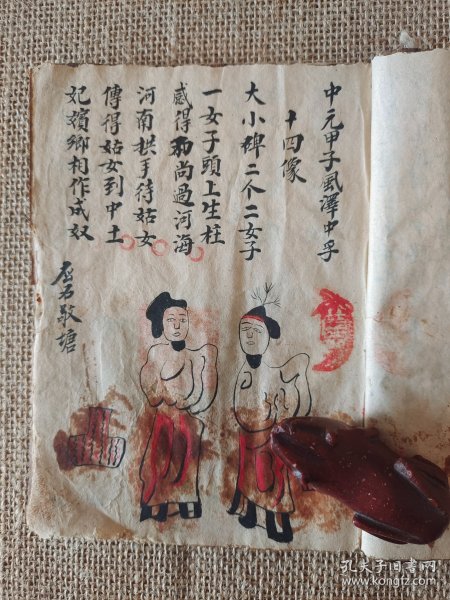 中元甲子風澤中孚
十四像
大小碑二个二女子
一女子頭上生枉
感得和尚過河海
河南拱手待姑女
傳得姑女到中土
妃嬪鄉相作成奴
石敬塘
孔夫子旧书网
www.kongfz.com